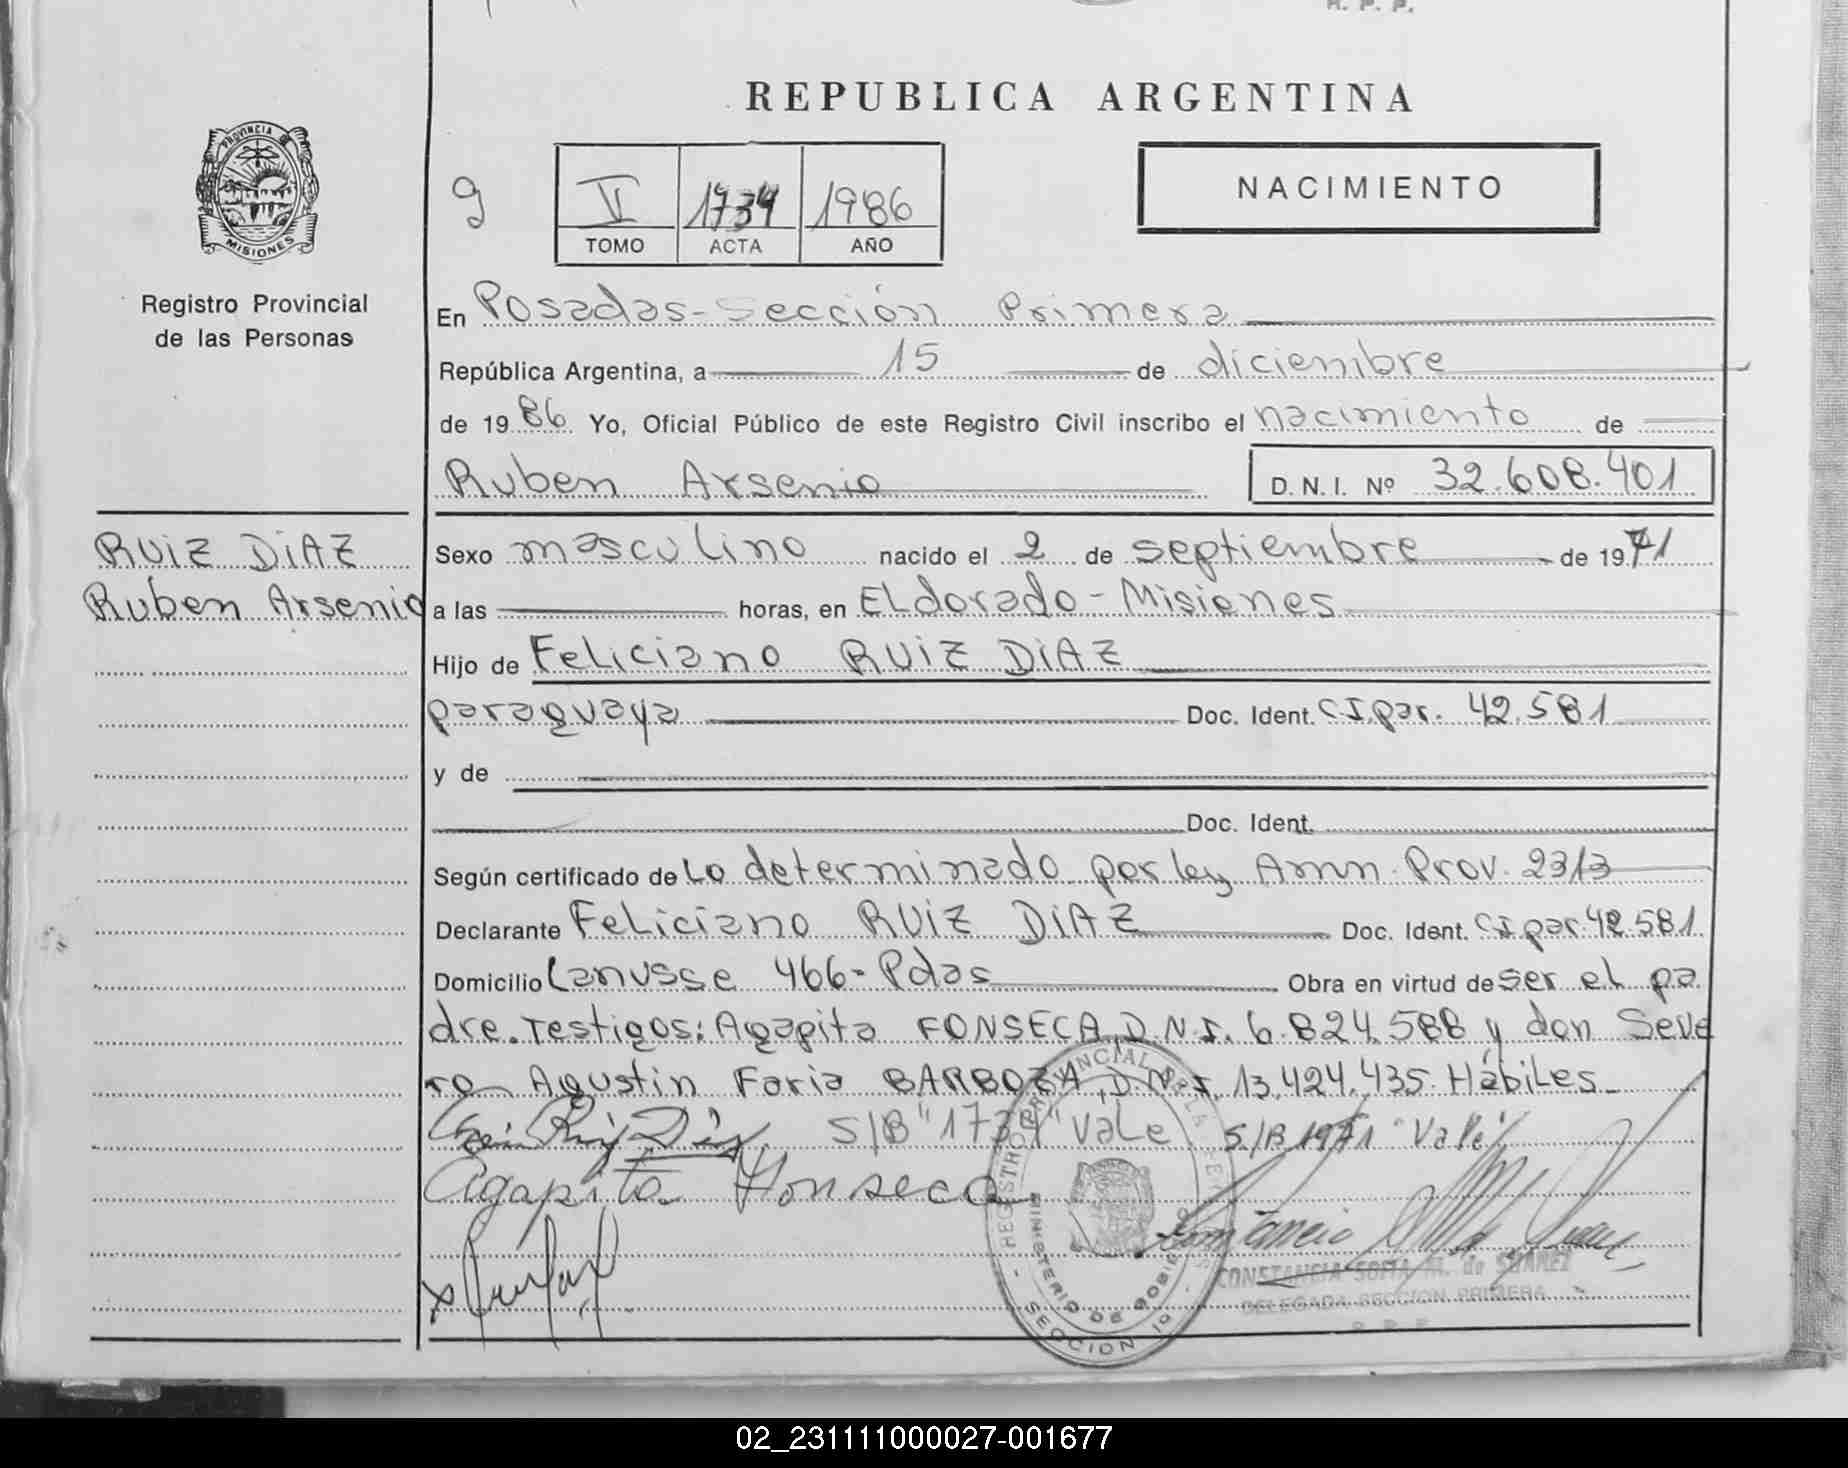 R. P. P.
REPUBLICA ARGENTINA
PROVINCIA DE
MISIONES
Registro Provincial
de las Personas
9
V 1734 1986
TOMO ACTA AÑO
NACIMIENTO
En Posadas-Sección Primera
República Argentina, a 15 de diciembre
de 1986 Yo, Oficial Público de este Registro Civil inscribo el nacimiento de
Ruben Arsenio D. N. I. Nº 32.608.401
RUIZ DIAZ
Ruben Arsenio
Sexo masculino nacido el 2 de septiembre de 1971
a las horas, en ELdorado-Misiones
Hijo de FeLiciano RUIZ DIAZ
paraguaya Doc. Ident. C.I.par. 42.581
y de
Doc. Ident.
Según certificado de Lo determinado por ley Amn. Prov. 2313
Declarante FeLiciano RUIZ DIAZ Doc. Ident. C.I.par.42.581.
Domicilio Lanusse 466-Pdas Obra en virtud de ser el pa
dre. Testigos: Agapita FONSECA, D.N.I. 6.824.588 y don Seve
ro Agustin Faria BARBOZA, D.N.I. 13.424.435. HábiLes
Ruiz Diaz S/B "1734" VaLe S/B 1971 "Vale"
Agapita Fonseca
REGISTRO PROVINCIAL DE LAS PERSONAS
MINISTERIO DE GOBIERNO
SECCION 1º
CONSTANCIA SOFIA M. de SUAREZ
DELEGADA SECCION PRIMERA
R. P. P.
02_231111000027-001677